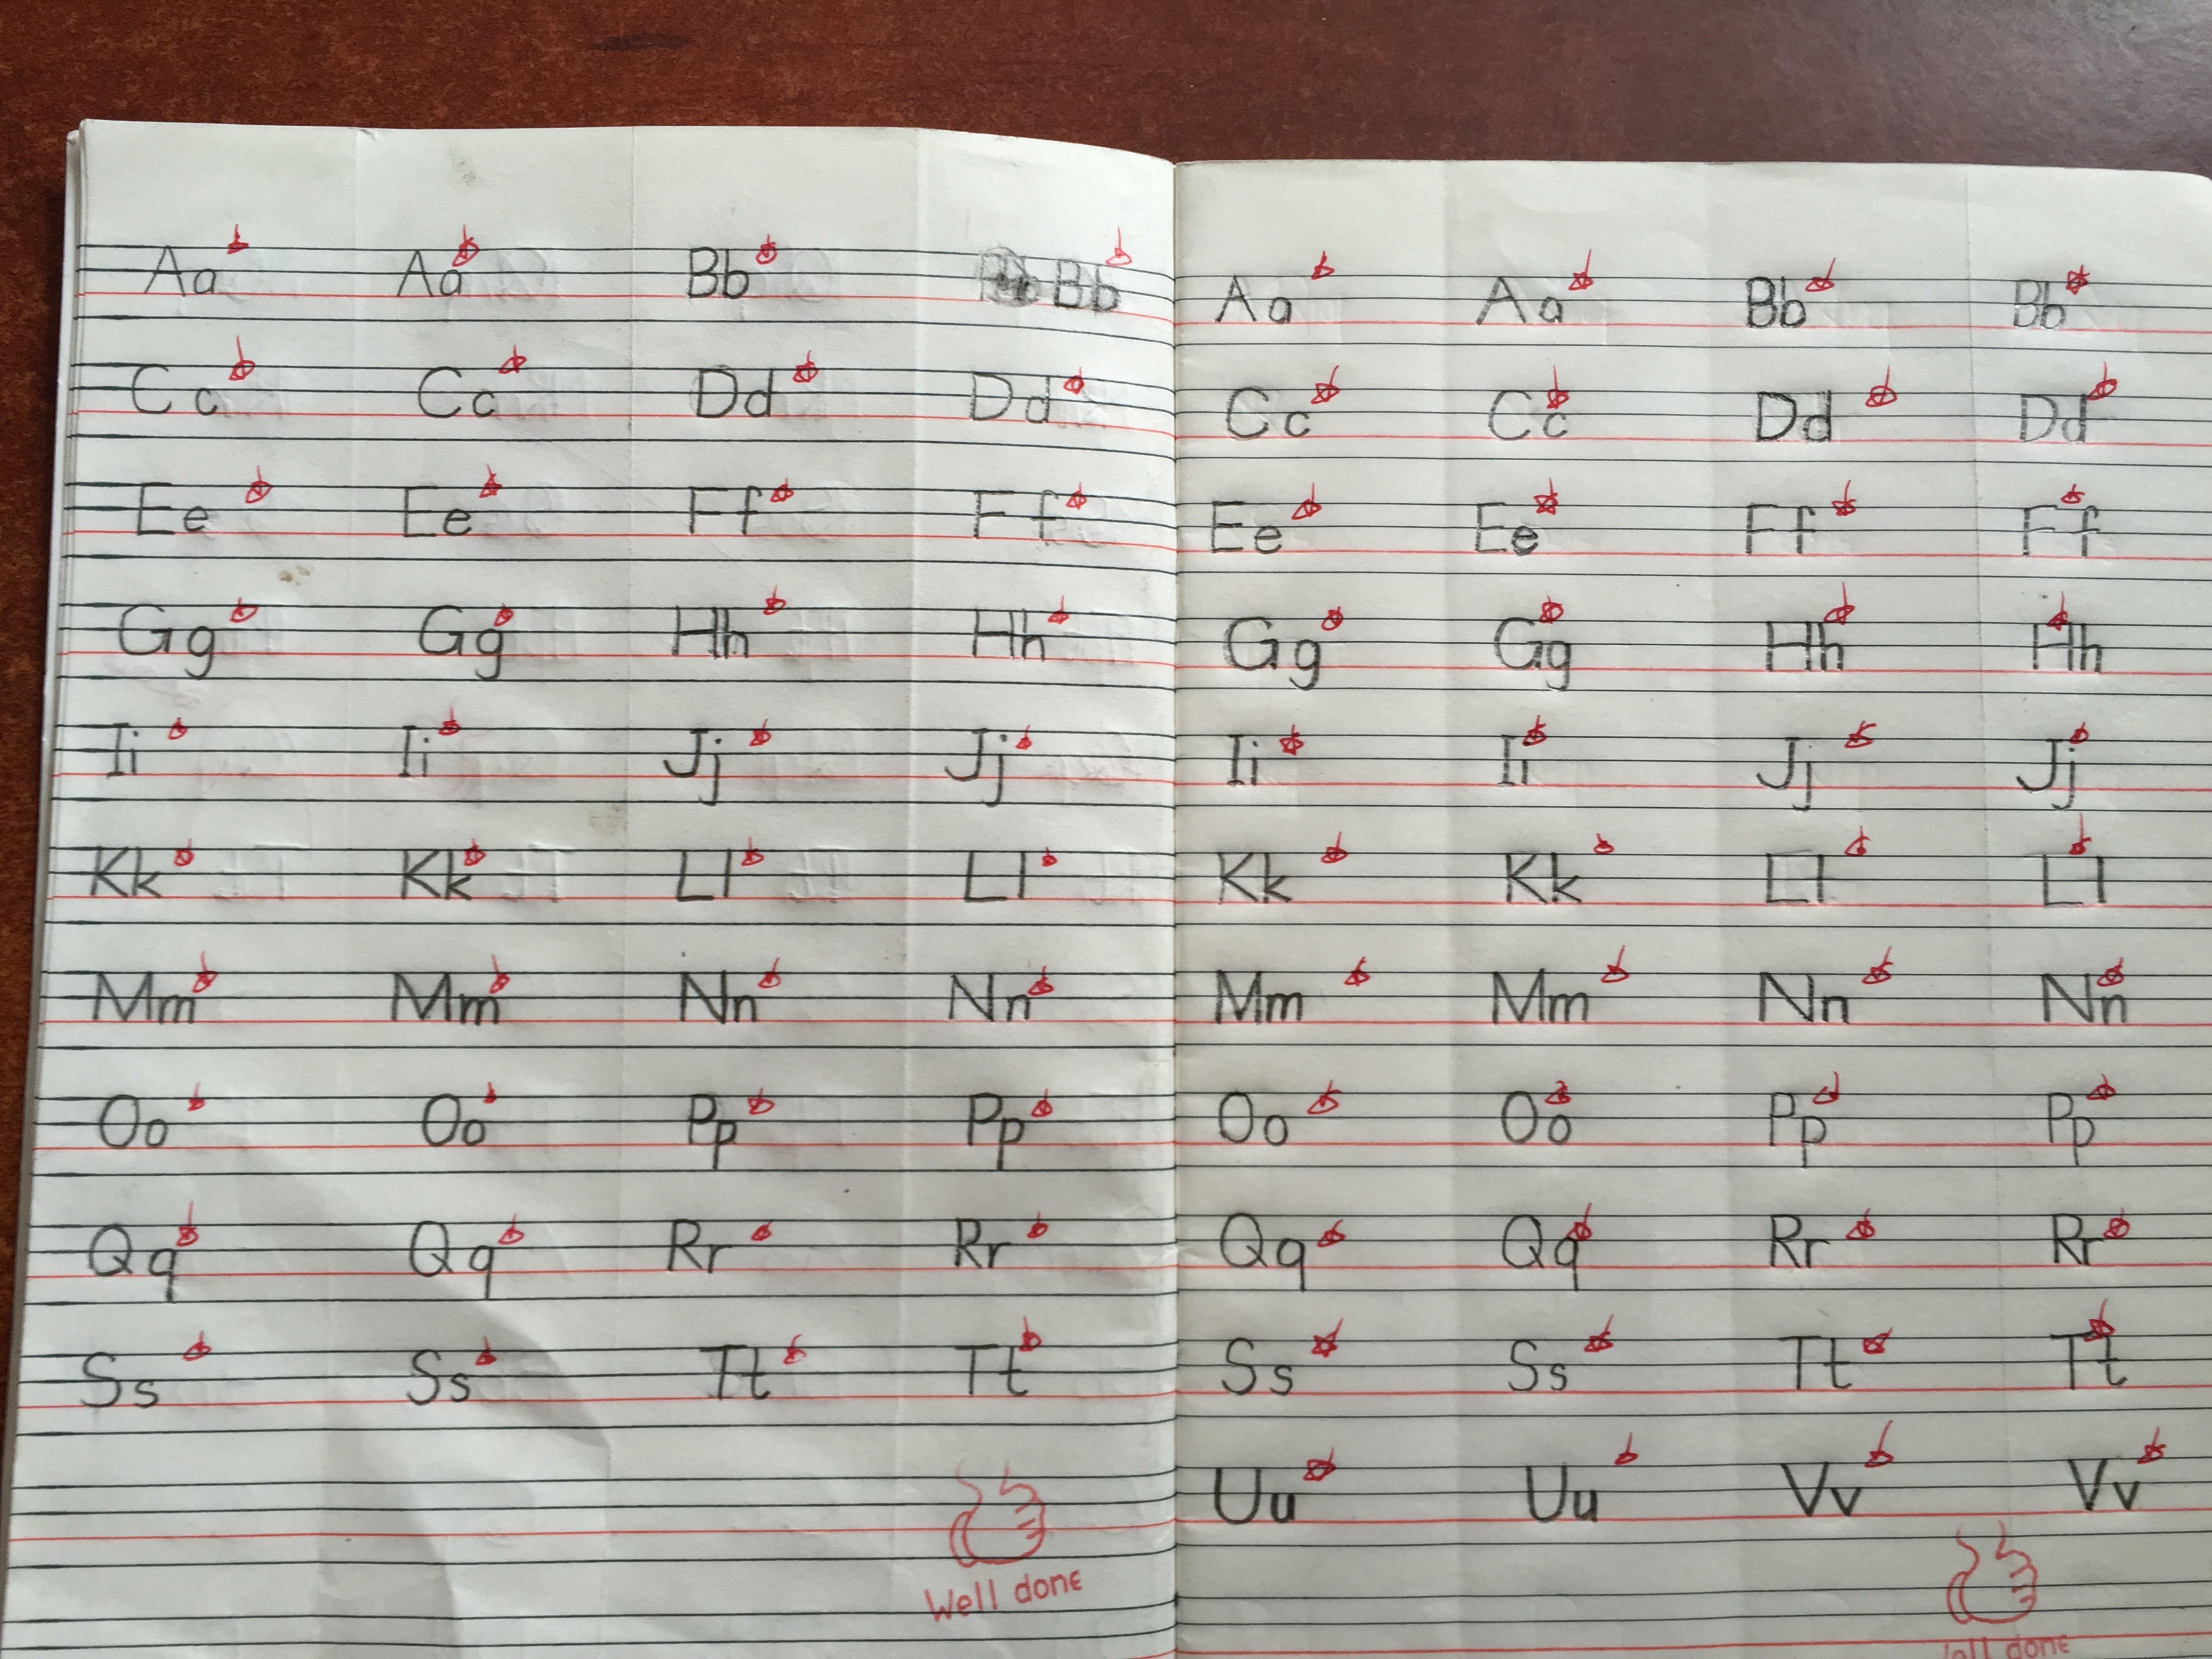 Aa Aa Bb Bb
Cc Cc Dd Dd
Ee Ee Ff Ff
Gg Gg Hh Hh
Ii Ii Jj Jj
Kk Kk Ll Ll
Mm Mm Nn Nn
Oo Oo Pp Pp
Qq Qq Rr Rr
Ss Ss Tt Tt
Well done
Aa Aa Bb Bb
Cc Cc Dd Dd
Ee Ee Ff Ff
Gg Gg Hh Hh
Ii Ii Jj Jj
Kk Kk Ll Ll
Mm Mm Nn Nn
Oo Oo Pp Pp
Qq Qq Rr Rr
Ss Ss Tt Tt
Uu Uu Vv Vv
Well done